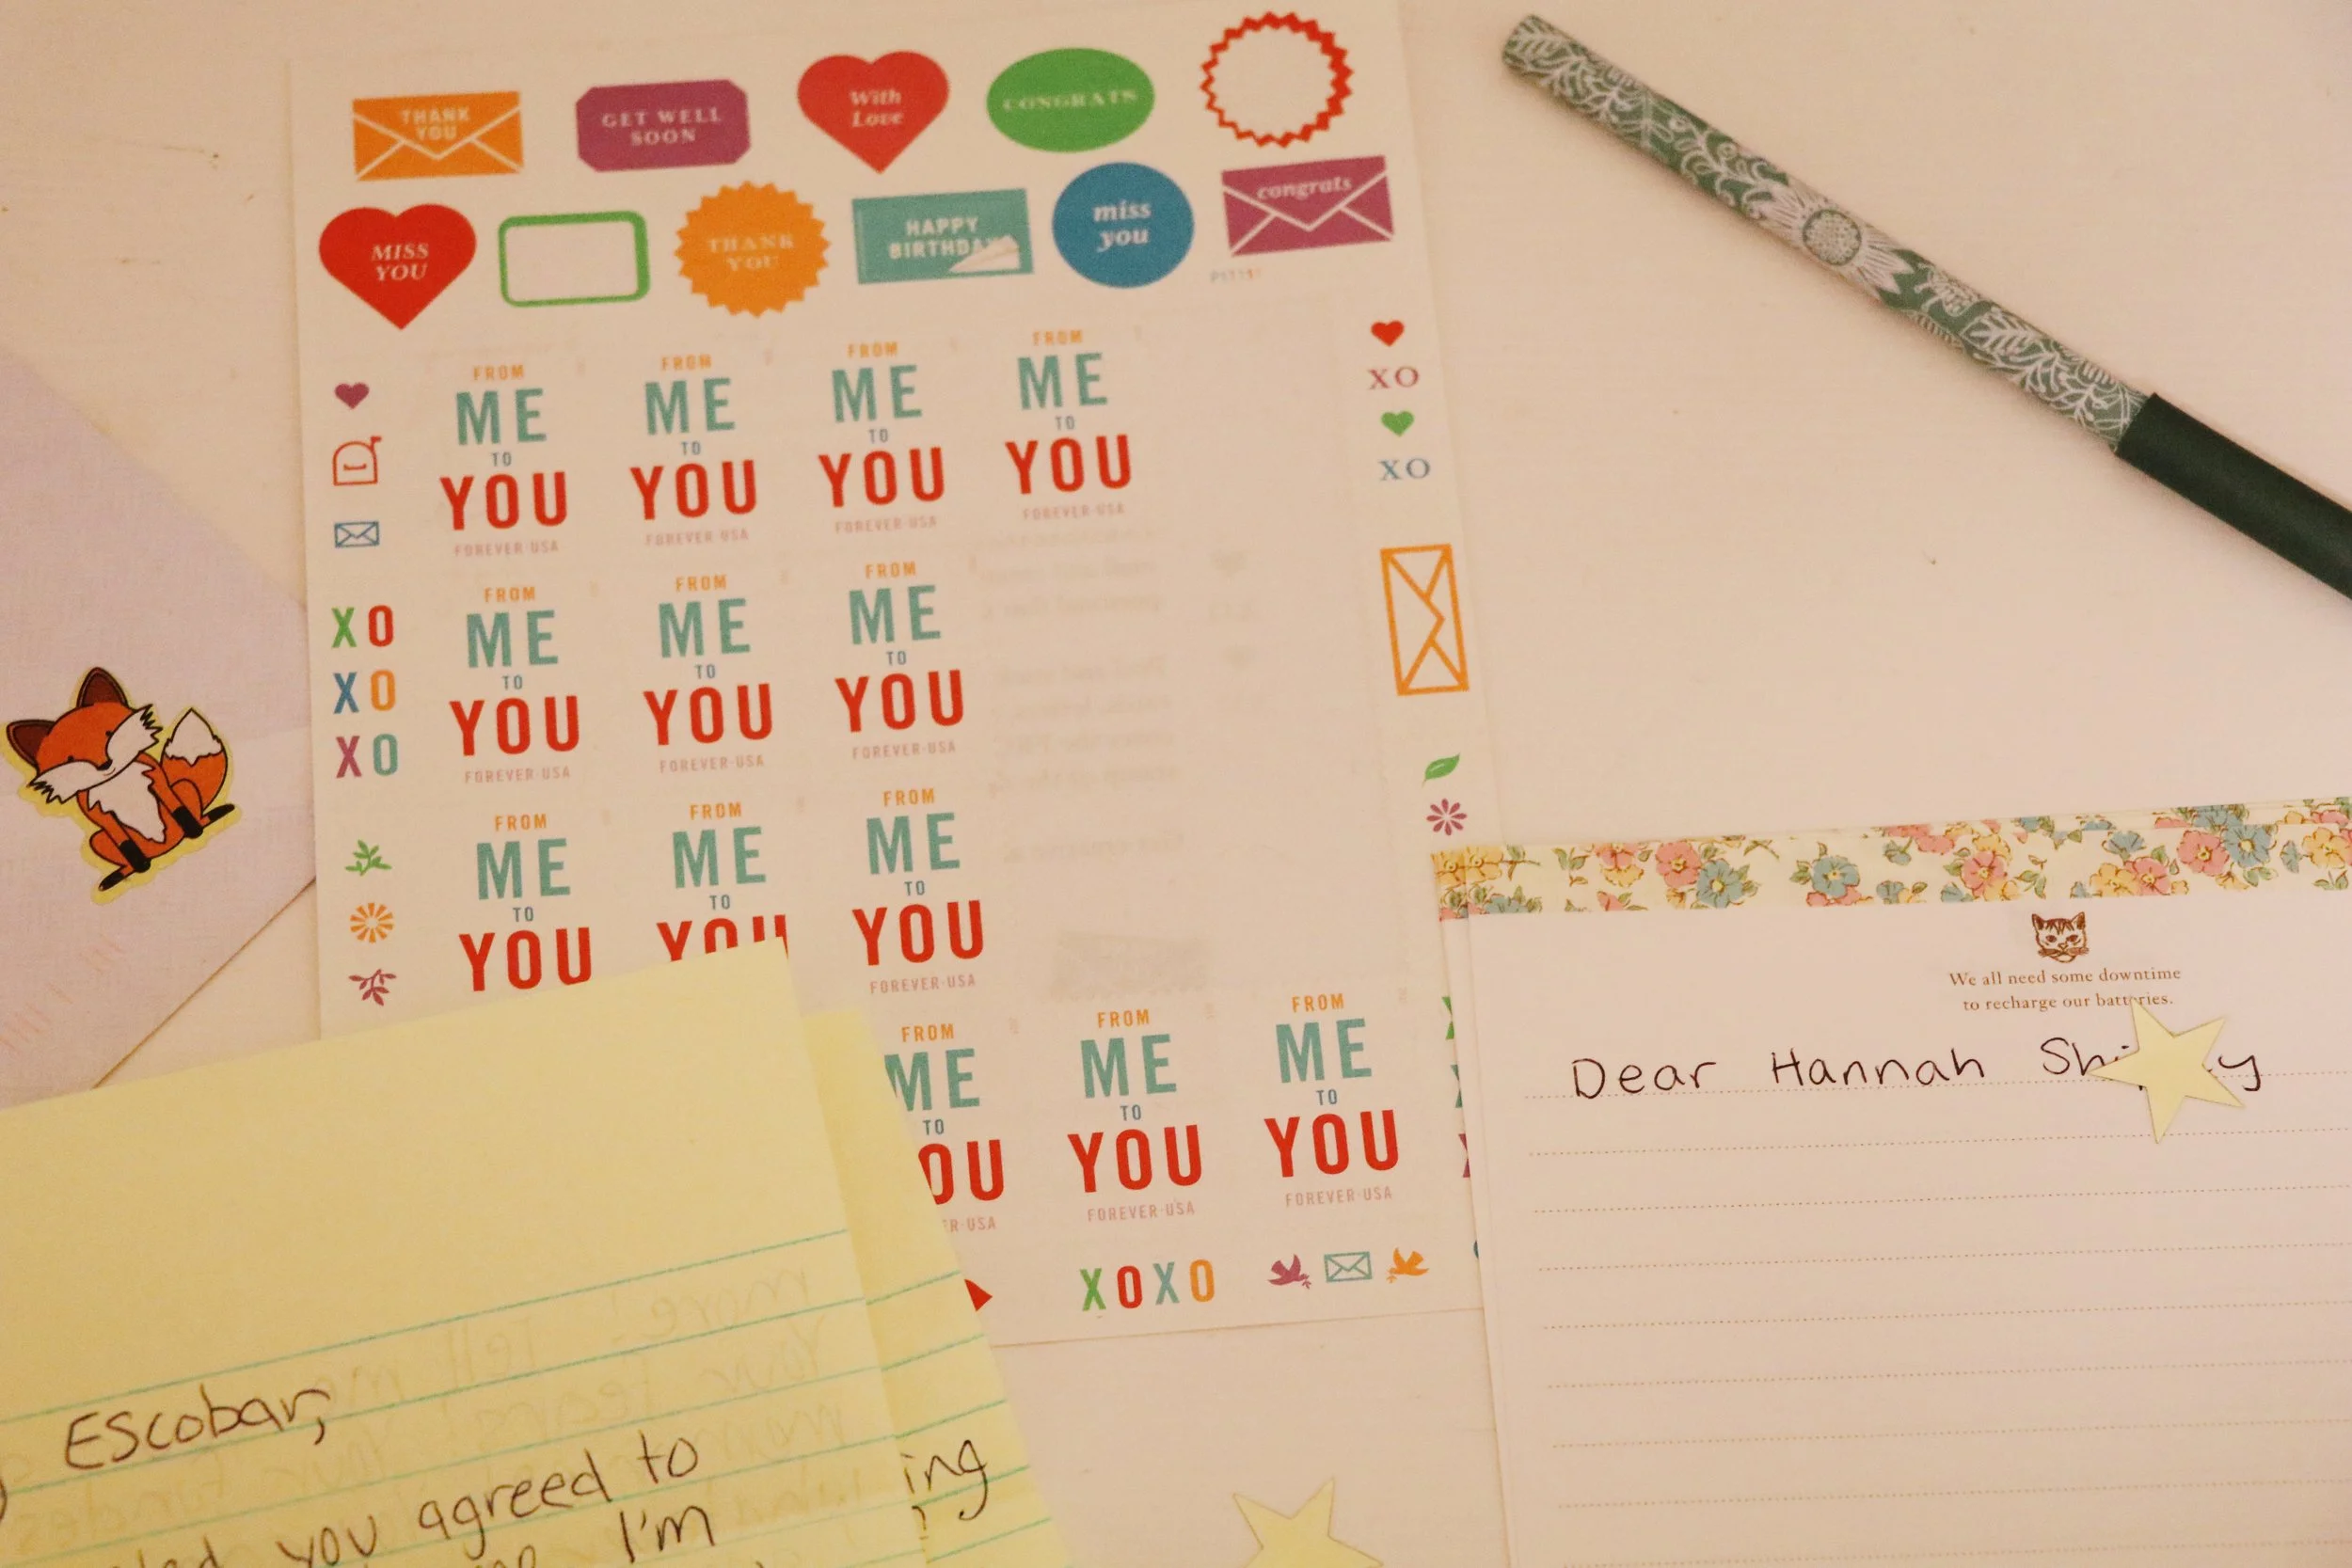 THANK
YOU
GET WELL
SOON
With
Love
CONGRATS
MISS
YOU
THANK
YOU
HAPPY
BIRTHDAY
miss
you
congrats
FROM
ME
TO
YOU
FOREVER·USA
FROM
ME
TO
YOU
FOREVER·USA
FROM
ME
TO
YOU
FOREVER·USA
FROM
ME
TO
YOU
FOREVER·USA
XO
XO
FROM
ME
TO
YOU
FOREVER·USA
FROM
ME
TO
YOU
FOREVER·USA
FROM
ME
TO
YOU
FOREVER·USA
XO
XO
XO
FROM
ME
TO
YOU
FROM
ME
TO
YOU
FROM
ME
TO
YOU
FOREVER·USA
FROM
ME
TO
OU
R·USA
FROM
ME
TO
YOU
FOREVER·USA
FROM
ME
TO
YOU
FOREVER·USA
XOXO
We all need some downtime
to recharge our batteries.
Dear Hannah
Escobar,
you agreed to
I'm
ing